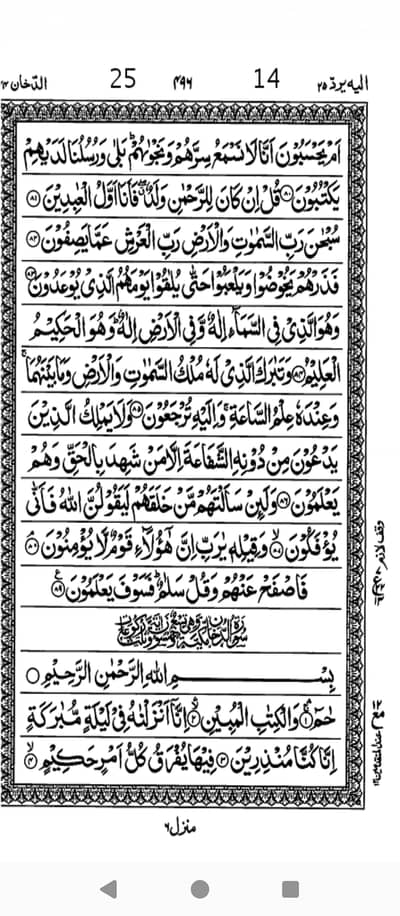 الدخان ٤٤ 25 ٤٩٦ 14 اليه يرد ٢٥
اَمْ يَحْسَبُوْنَ اَنَّا لَا نَسْمَعُ سِرَّهُمْ وَنَجْوٰىهُمْ ؕ بَلٰى وَرُسُلُنَا لَدَيْهِمْ
يَكْتُبُوْنَ ﴿۸۰﴾ قُلْ اِنْ كَانَ لِلرَّحْمٰنِ وَلَدٌ ۖ فَاَنَا اَوَّلُ الْعٰبِدِيْنَ ﴿۸۱﴾
سُبْحٰنَ رَبِّ السَّمٰوٰتِ وَالْاَرْضِ رَبِّ الْعَرْشِ عَمَّا يَصِفُوْنَ ﴿۸۲﴾
فَذَرْهُمْ يَخُوْضُوْا وَيَلْعَبُوْا حَتّٰى يُلٰقُوْا يَوْمَهُمُ الَّذِيْ يُوْعَدُوْنَ ﴿۸۳﴾
وَهُوَ الَّذِيْ فِي السَّمَآءِ اِلٰهٌ وَّفِي الْاَرْضِ اِلٰهٌ ؕ وَهُوَ الْحَكِيْمُ
الْعَلِيْمُ ﴿۸۴﴾ وَتَبٰرَكَ الَّذِيْ لَهٗ مُلْكُ السَّمٰوٰتِ وَالْاَرْضِ وَمَا بَيْنَهُمَا ۚ
وَعِنْدَهٗ عِلْمُ السَّاعَةِ ۚ وَاِلَيْهِ تُرْجَعُوْنَ ﴿۸۵﴾ وَلَا يَمْلِكُ الَّذِيْنَ
يَدْعُوْنَ مِنْ دُوْنِهِ الشَّفَاعَةَ اِلَّا مَنْ شَهِدَ بِالْحَقِّ وَهُمْ
يَعْلَمُوْنَ ﴿۸۶﴾ وَلَئِنْ سَاَلْتَهُمْ مَّنْ خَلَقَهُمْ لَيَقُوْلُنَّ اللّٰهُ فَاَنّٰى
يُؤْفَكُوْنَ ﴿۸۷﴾ وَقِيْلِهٖ يٰرَبِّ اِنَّ هٰٓؤُلَآءِ قَوْمٌ لَّا يُؤْمِنُوْنَ ﴿۸۸﴾
فَاصْفَحْ عَنْهُمْ وَقُلْ سَلٰمٌ ؕ فَسَوْفَ يَعْلَمُوْنَ ﴿۸۹﴾
بِسْمِ اللّٰهِ الرَّحْمٰنِ الرَّحِيْمِ
حٰمٓ ﴿۱﴾ وَالْكِتٰبِ الْمُبِيْنِ ﴿۲﴾ اِنَّاۤ اَنْزَلْنٰهُ فِيْ لَيْلَةٍ مُّبٰرَكَةٍ
اِنَّا كُنَّا مُنْذِرِيْنَ ﴿۳﴾ فِيْهَا يُفْرَقُ كُلُّ اَمْرٍ حَكِيْمٍ ﴿۴﴾
وقف لازم
منزل ٦